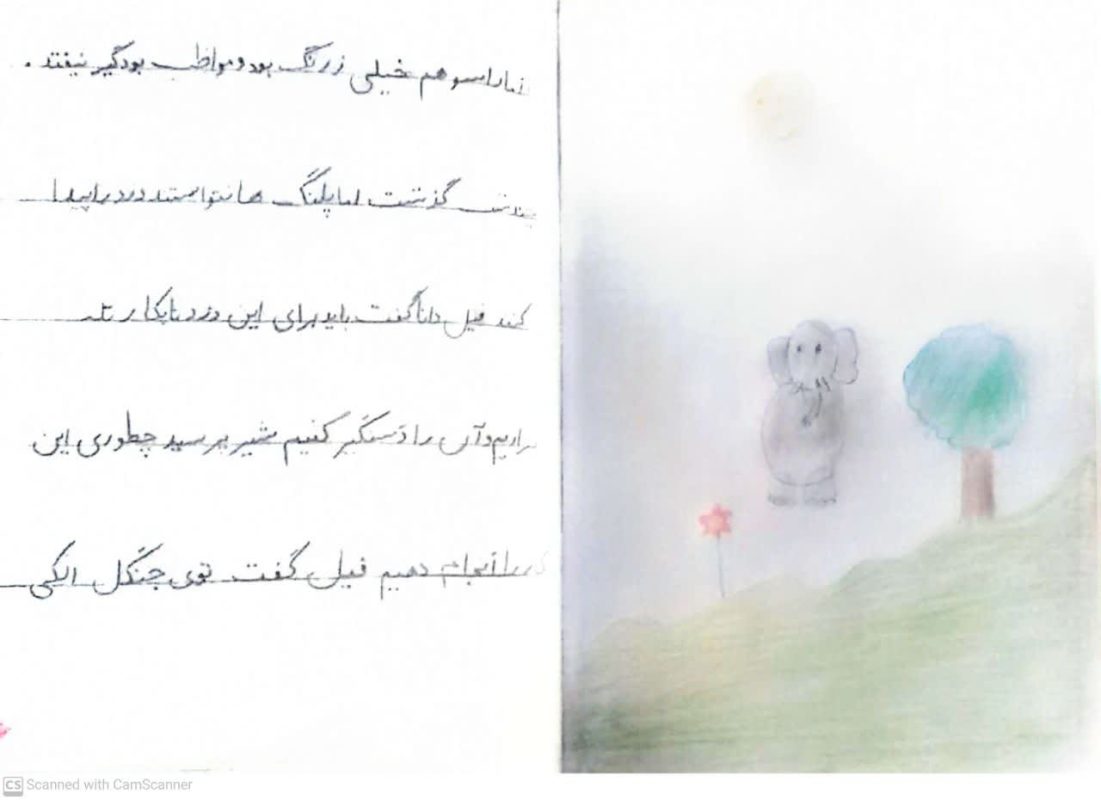 هم خیلی زرنگ بود و مواظب بود گیر نیفتد .
گذشت اما پلنگ ها نتوانستند دزد را پیدا
کند فیل دانا گفت باید برای این دزد نابکار
را دستگیر کنیم شیر پرسید چطوری این
را انجام دهیم فیل گفت توی جنگل الکی
CS Scanned with CamScanner